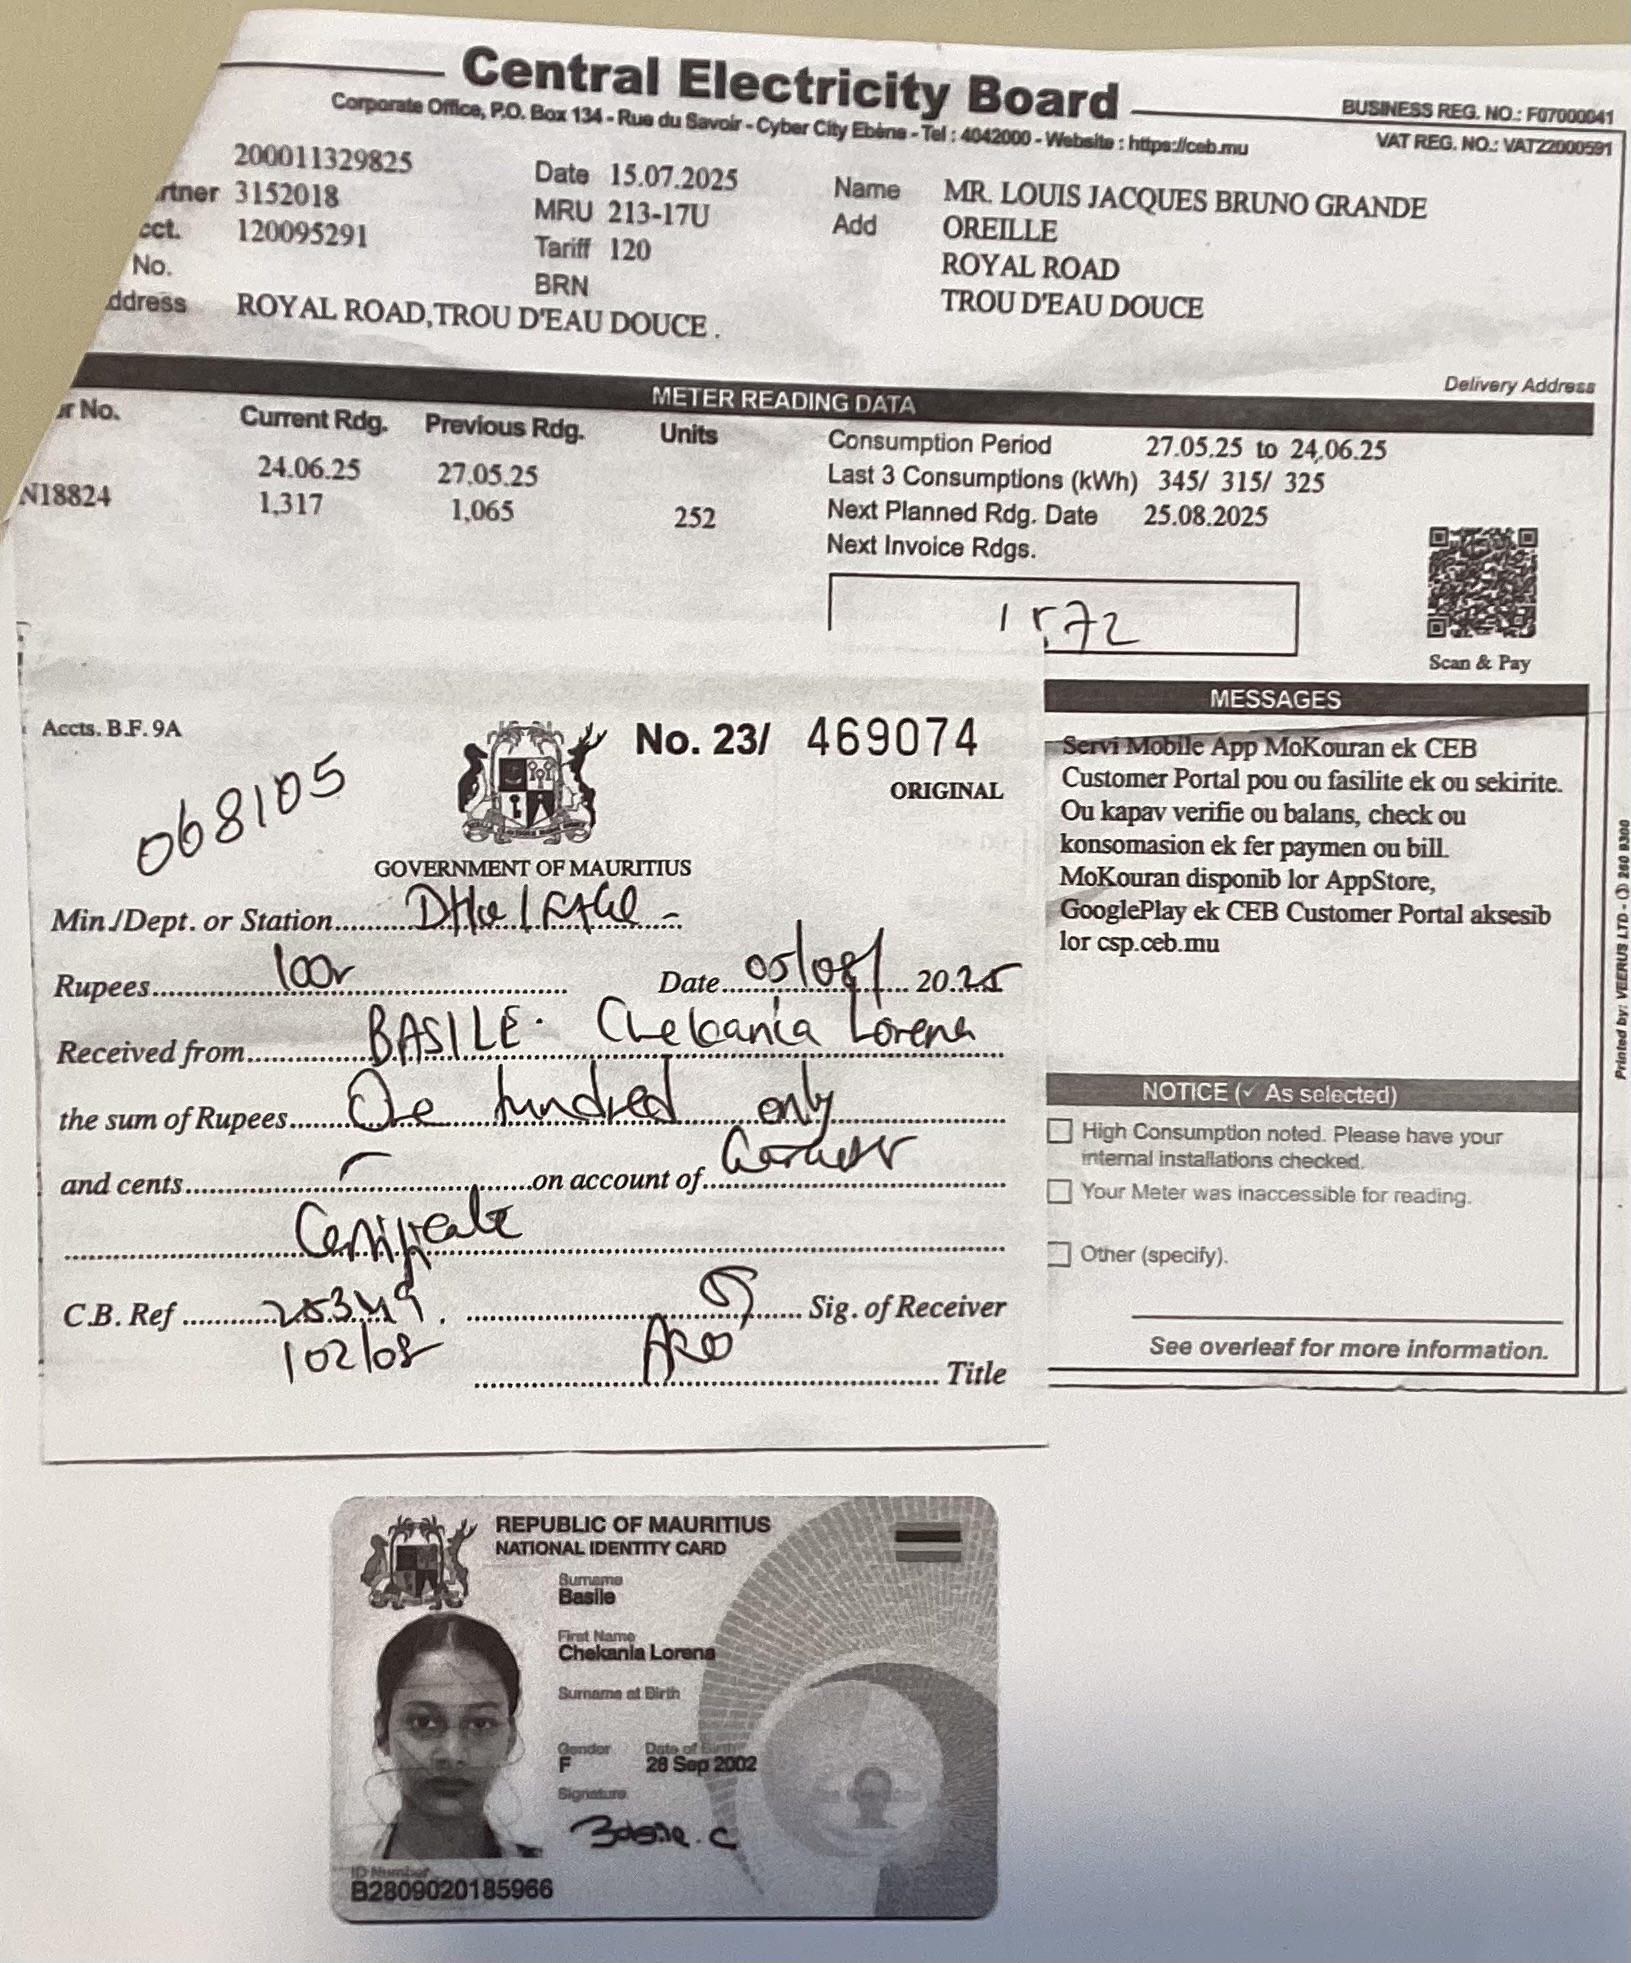 Central Electricity Board
Corporate Office, P.O. Box 134 - Rue du Savoir - Cyber City Ebène - Tel : 4042000 - Website : https://ceb.mu
BUSINESS REG. NO.: F07000041
VAT REG. NO.: VAT22000591
200011329825
rtner 3152018
cct. 120095291
No.
ddress ROYAL ROAD,TROU D'EAU DOUCE .
Date 15.07.2025
MRU 213-17U
Tariff 120
BRN
Name MR. LOUIS JACQUES BRUNO GRANDE
Add OREILLE
ROYAL ROAD
TROU D'EAU DOUCE
Delivery Address
METER READING DATA
r No. Current Rdg. Previous Rdg. Units
24.06.25 27.05.25
N18824 1,317 1,065 252
Consumption Period 27.05.25 to 24.06.25
Last 3 Consumptions (kWh) 345/ 315/ 325
Next Planned Rdg. Date 25.08.2025
Next Invoice Rdgs.
1572
Scan & Pay
MESSAGES
Servi Mobile App MoKouran ek CEB
Customer Portal pou ou fasilite ek ou sekirite.
Ou kapav verifie ou balans, check ou
konsomasion ek fer paymen ou bill.
MoKouran disponib lor AppStore,
GooglePlay ek CEB Customer Portal aksesib
lor csp.ceb.mu
NOTICE (✓ As selected)
High Consumption noted. Please have your
internal installations checked.
Your Meter was inaccessible for reading.
Other (specify).
See overleaf for more information.
Printed by: VEERUS LTD - 260 8300
Accts. B.F. 9A
No. 23/ 469074
ORIGINAL
068105
GOVERNMENT OF MAURITIUS
Min./Dept. or Station
Rupees 100r Date 05/08/ 2025
Received from BASILE. Chekania Lorena
the sum of Rupees One hundred only
and cents on account of
Certificate
C.B. Ref Sig. of Receiver
102/08
Title
REPUBLIC OF MAURITIUS
NATIONAL IDENTITY CARD
Surname
Basile
First Name
Chekania Lorena
Surname at Birth
Gender Date of Birth
F 28 Sep 2002
Signature
Basile. C
ID Number
B2809020185966